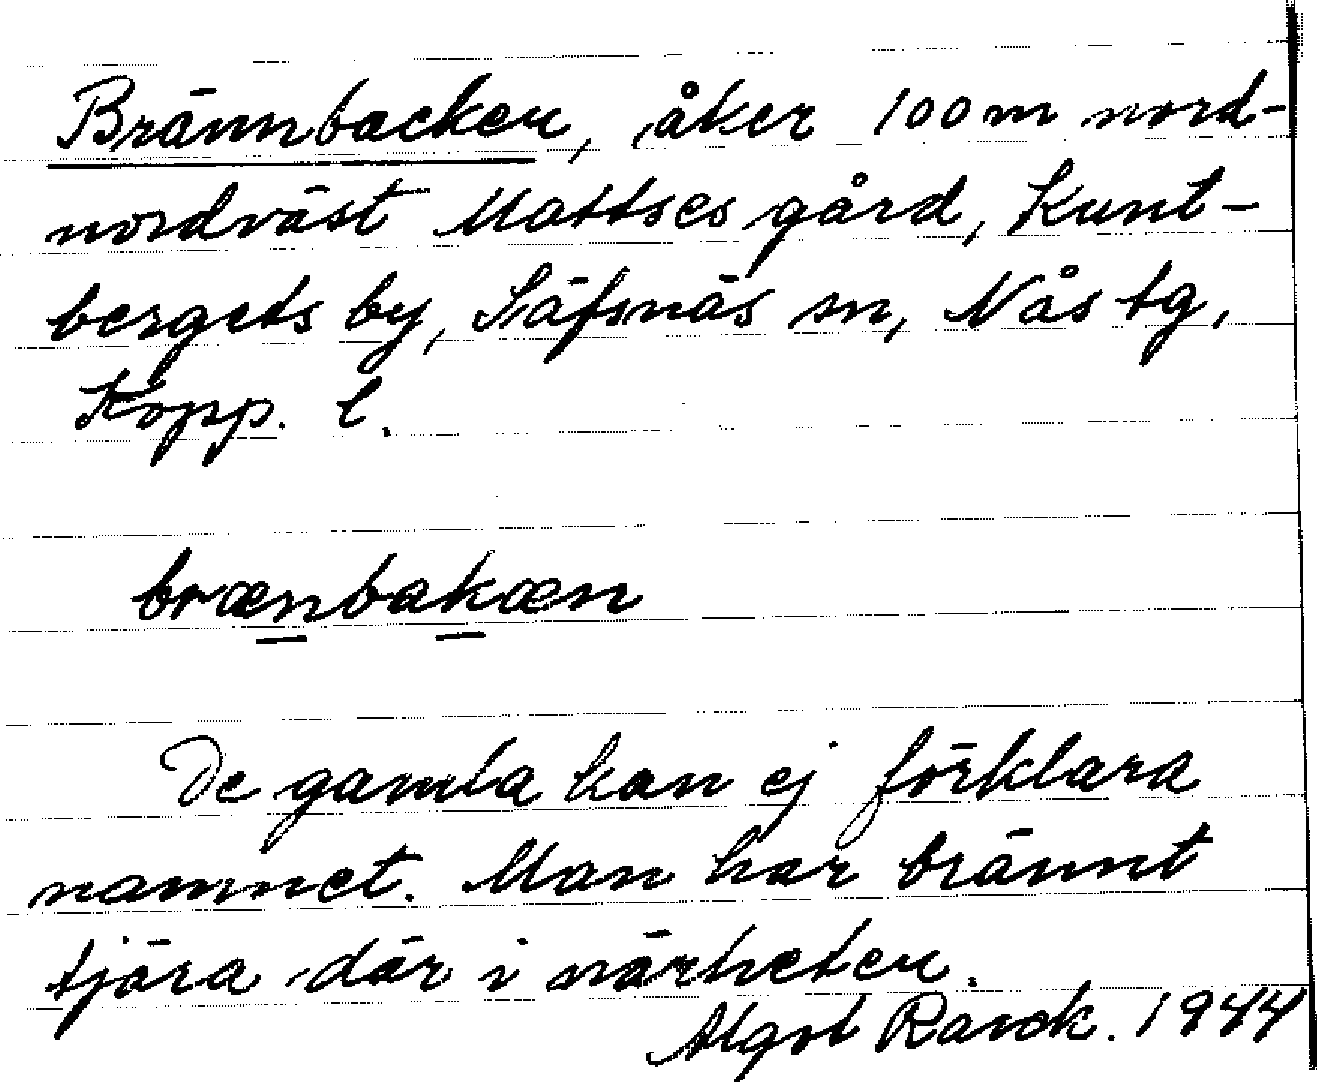 Brännbacken, åker 100 m nord-
nordväst Mattses gård, Kunt-
bergets by, Säfsnäs sn, Nås tg,
Kopp. l.
brænbakæn
De gamla kan ej förklara
namnet. Man har brännt
tjära där i närheten.
Algot Rarck. 1944